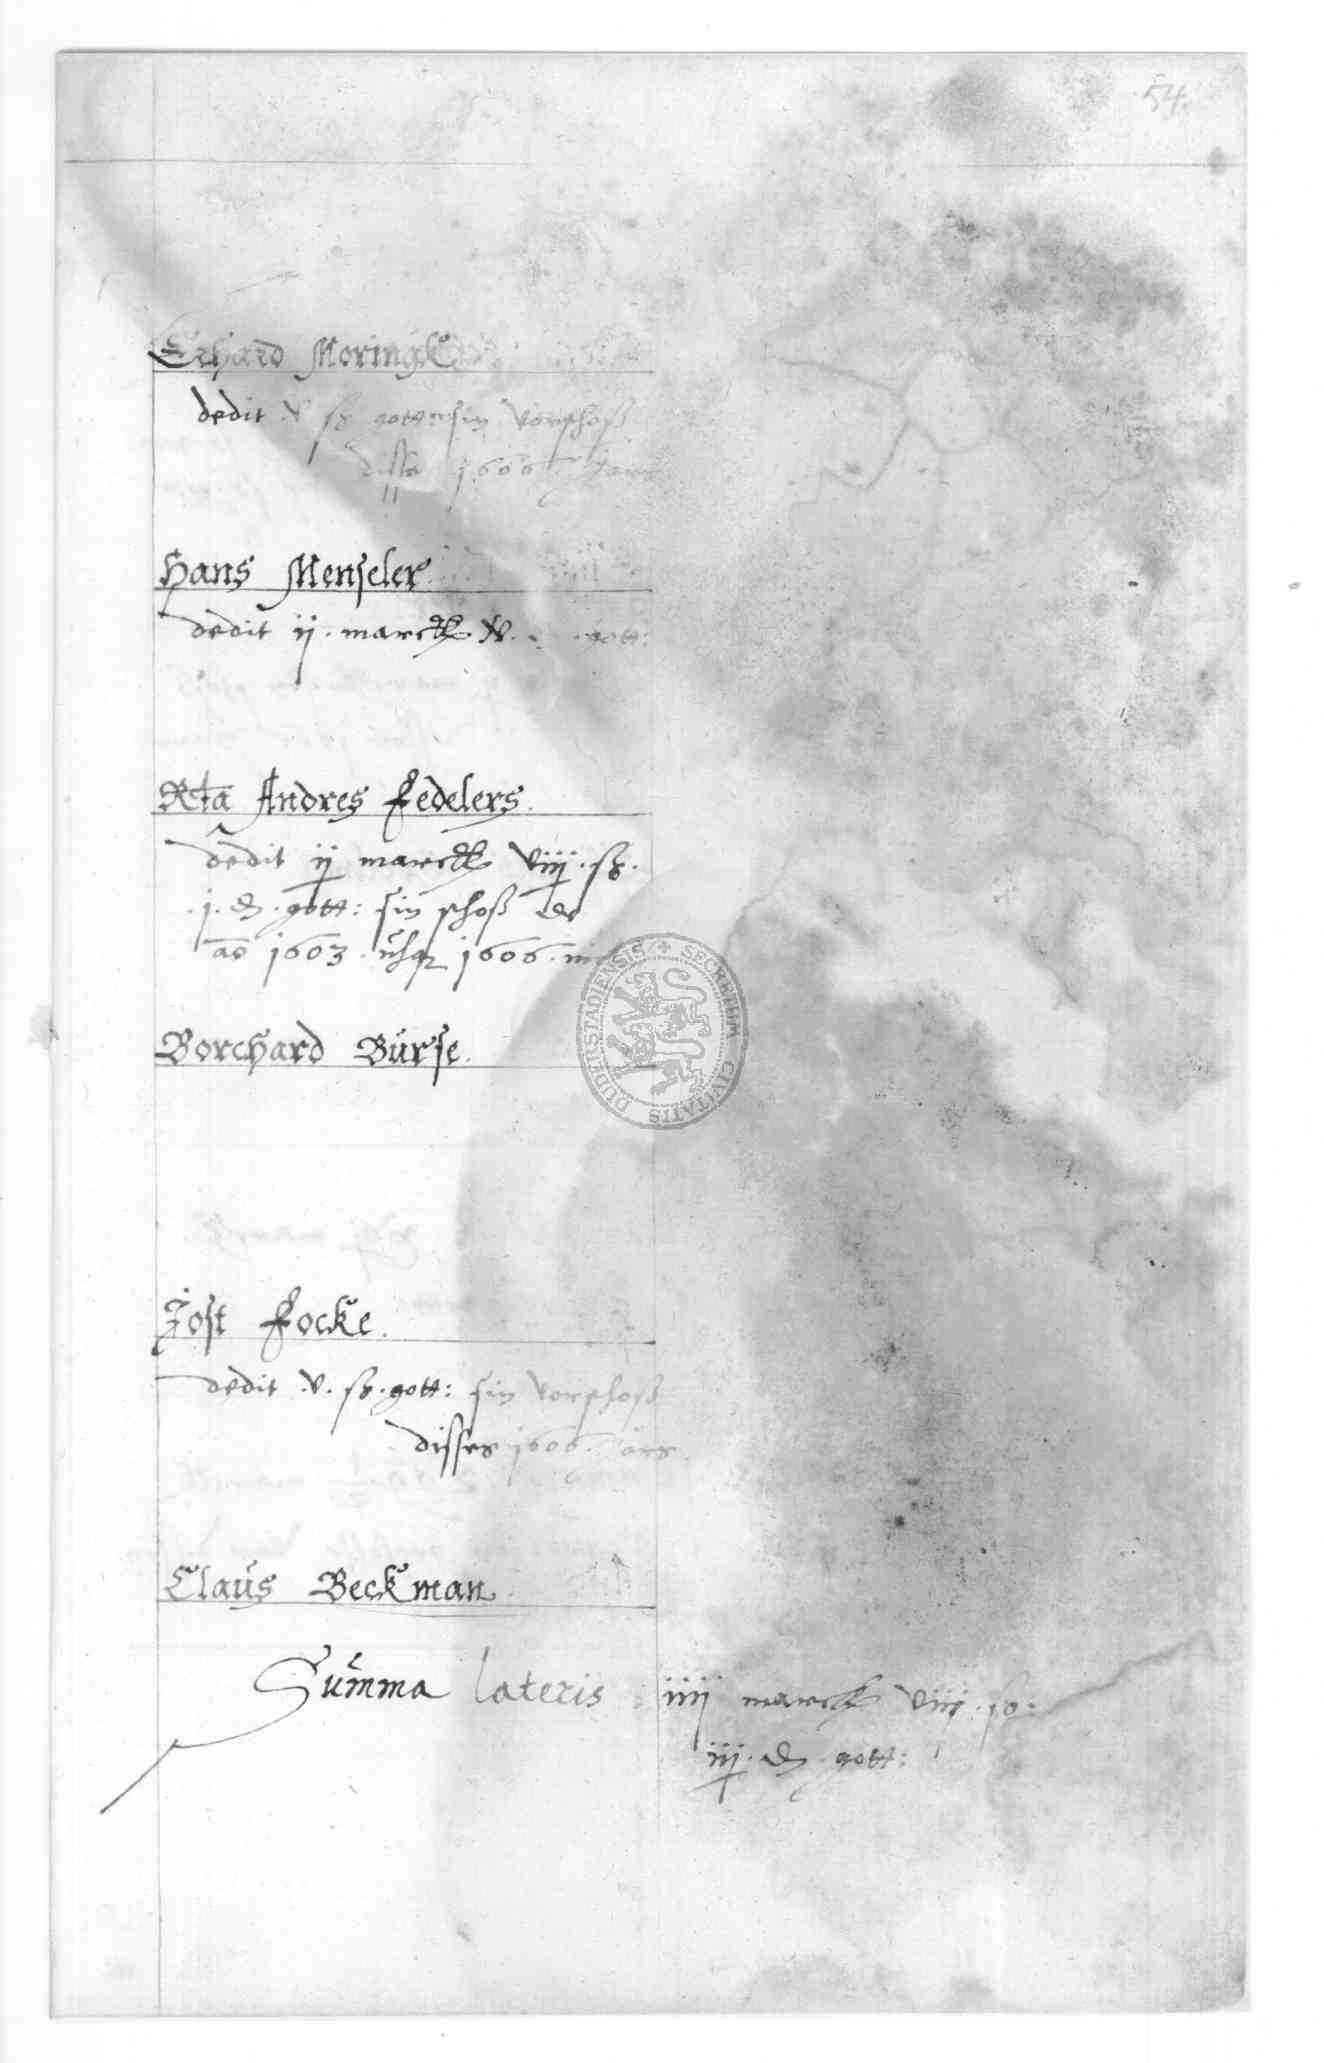 54.
Erhard Moring
dedit v ß gott: sin vorschoß
disses 1606
Hans Menseler
dedit ij. marck v. gott:
Rta Andres Fedelers.
dedit ij marck viij. ß.
.j. ₰. gott: sin schoß de
ao 1603. usq 1606.
Borchard Bürse.
Jost Focke.
dedit .v. ß. gott: sin vorschoß
disses 1606. jars
Claüs Beckman
Sum̃ma lateris iiij marck viij. ß.
iij. ₰ gott:
DUDERSTADIENSIS SECRETUM CIVITATIS